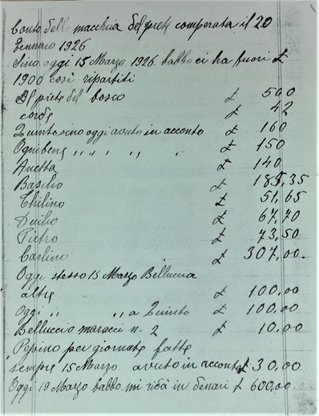 Conto della macchia del prete comperata il 20
Gennaro 1926
Sino oggi 15 Marzo 1926 babbo ci ha fuori £
1900 così ripartiti
Al prete del bosco £ 500
corde £ 42
Quinto sino oggi avuto in acconto £ 160
Ognibene " " " " £ 150
Anetta £ 140
Basilio £ 185,35
Ehilino £ 51,65
Duilio £ 67,70
Pietro £ 73,50
Carlino £ 307,00
Oggi stesso 15 Marzo Belluccia
altre £ 100,00
Oggi " " a Quinto £ 100,00
Belluccio maracci n. 2 £ 10,00
Pepino per giornate fatte
sempre 15 Marzo avuto in acconto £ 30,00
Oggi 19 Marzo babbo mi ridà in denari £ 600,00